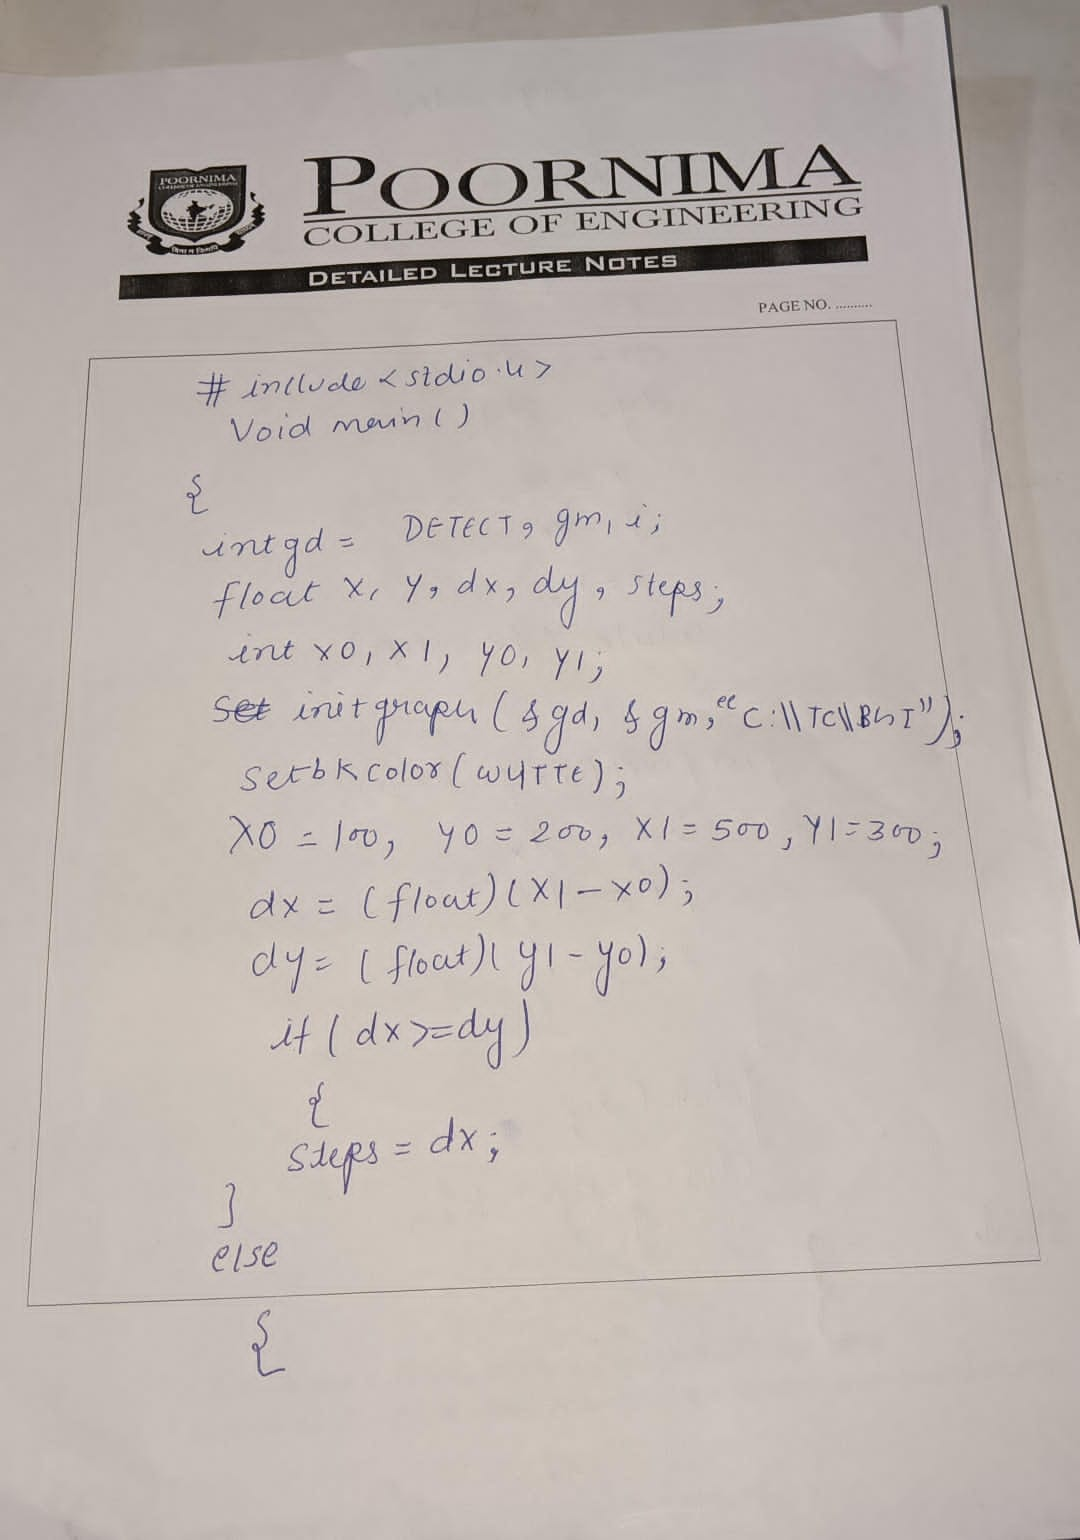 POORNIMA
COLLEGE OF ENGINEERING
POORNIMA
COLLEGE OF ENGINEERING
DETAILED LECTURE NOTES
PAGE NO. ..........
# include <stdio.h>
Void main()
{
int gd = DETECT, gm, i;
float x, y, dx, dy, steps;
int x0, x1, y0, y1;
Set initgraph (&gd, &gm, "C:\\TC\\BGI");
setbkcolor(WHITE);
X0 = 100, y0 = 200, X1 = 500, Y1 = 300;
dx = (float)(X1 - x0);
dy = (float)(y1 - y0);
if (dx >= dy)
{
steps = dx;
}
else
{